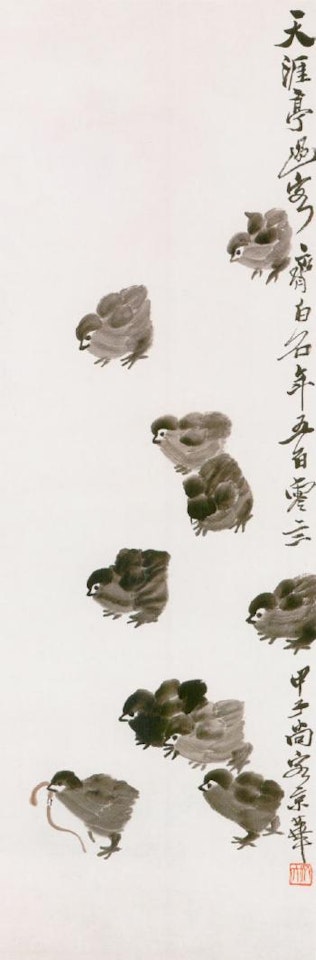 天涯亭過客齊白石年五百零
甲子尚客京華